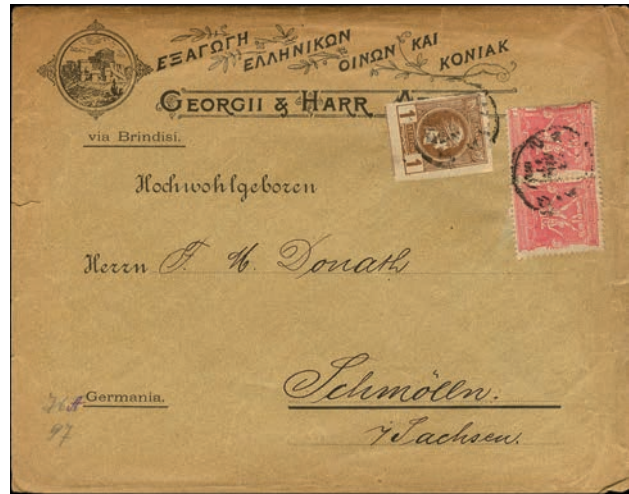 ΕΞΑΓΩΓΗ ΕΛΛΗΝΙΚΩΝ ΟΙΝΩΝ ΚΑΙ ΚΟΝΙΑΚ
GEORGII & HARR
via Brindisi.
1 1
Hochwohlgeboren
Herrn F. M. Donath
Schmölln.
Germania.
i/Sachsen.
97